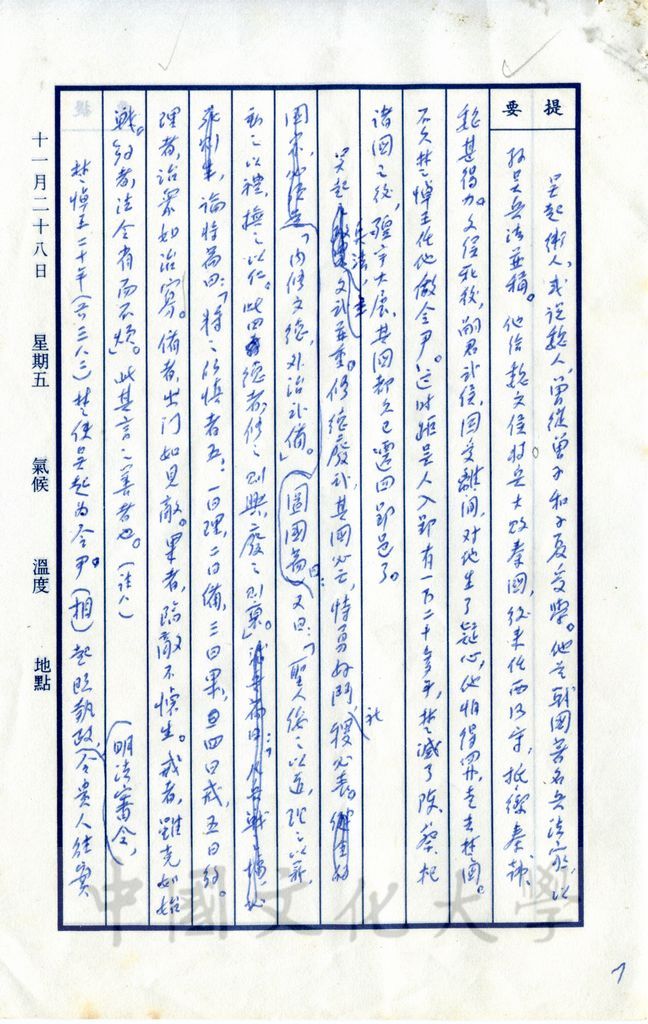 提要
吳起衛人，或說魏人，曾從曾子和子夏受學。他是戰國著名兵法家，以
孫吳兵法並稱。他給魏文侯將兵大敗秦國，後來任西河守，抵禦秦韓，
魏甚得力。文侯死後，嗣君武侯，因受離間，對他生了疑心，他怕得罪，走去楚國。
不久楚悼王任他做令尹。這時距吳人入郢有一百二十多年，楚滅了陳、蔡、杞
諸國之後，疆宇大展，其國都久已遷回郢邑了。
吳起兵法，主文武並重。修德廢武，其國必亡，恃勇好鬥，社稷必喪。
「內修文德，外治武備。」（圖國篇）又曰：「聖人綏之以道，理之以義，
動之以禮，撫之以仁。此四德者，修之則興，廢之則衰」。
論將篇曰：「將之所慎者五：一曰理，二曰備，三曰果，四曰戒，五曰約。
理者，治眾如治寡。備者，出門如見敵。果者，臨敵不懷生。戒者，雖克如始
戰。約者，法令省而不煩」。此其言之善者也。
楚悼王二十年（前三八二）楚使吳起為令尹。（相）起既執政，明法審令，令貴人往實
十一月二十八日 星期五 氣候 溫度 地點
中國文化大學
7